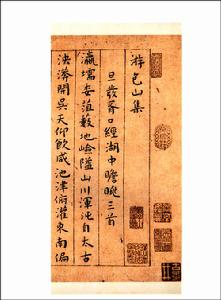 游包山集
旦發胥口經湖中瞻眺三首
瀛壖委菹藪地嶮隘山川渾沌自太古
決漭開吳天仰飲咸池津俯灌東南偏